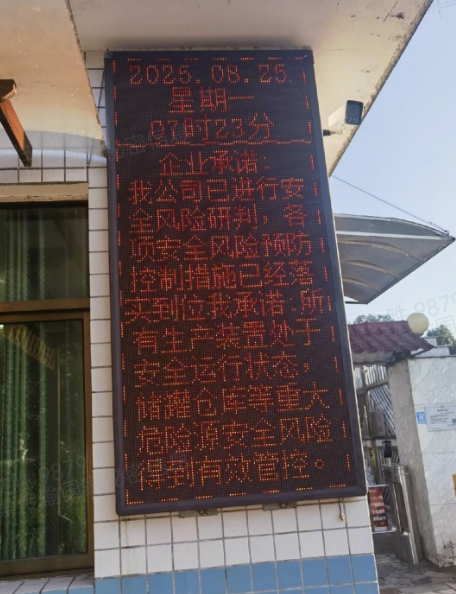 2025.08.25.
星期一
07时23分
企业承诺：
我公司已进行安
全风险研判，各
项安全风险预防
控制措施已经落
实到位我承诺：所
有生产装置处于
安全运行状态，
储罐仓库等重大
危险源安全风险
得到有效管控。